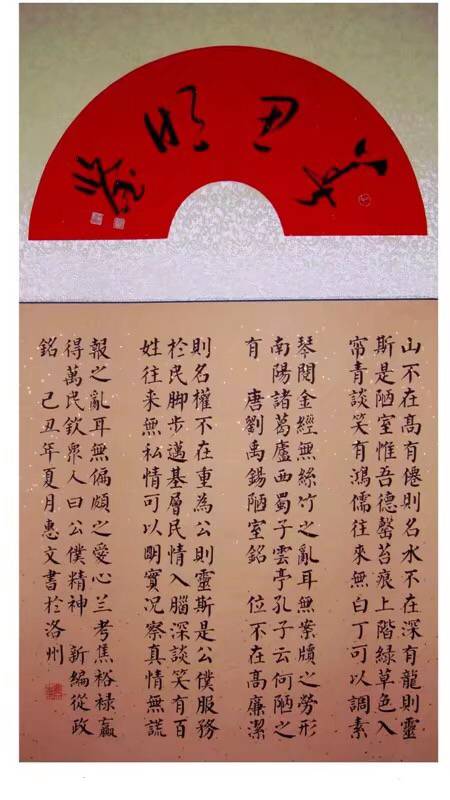 山不在高有僊則名水不在深有龍則靈
斯是陋室惟吾德馨苔痕上階緑草色入
帘青談笑有鴻儒往來無白丁可以調素
琴閱金經無絲竹之亂耳無案牘之勞形
南陽諸葛廬西蜀子雲亭孔子云何陋之
有 唐劉禹錫陋室銘 位不在高廉潔
則名權不在重為公則靈斯是公僕服務
於民脚步邁基層民情入腦深談笑有百
姓往來無私情可以明實況察真情無謊
報之亂耳無偏頗之愛心兰考焦裕禄贏
得萬民欽衆人曰公僕精神 新編從政
銘 己丑年夏月惠文書於洛州